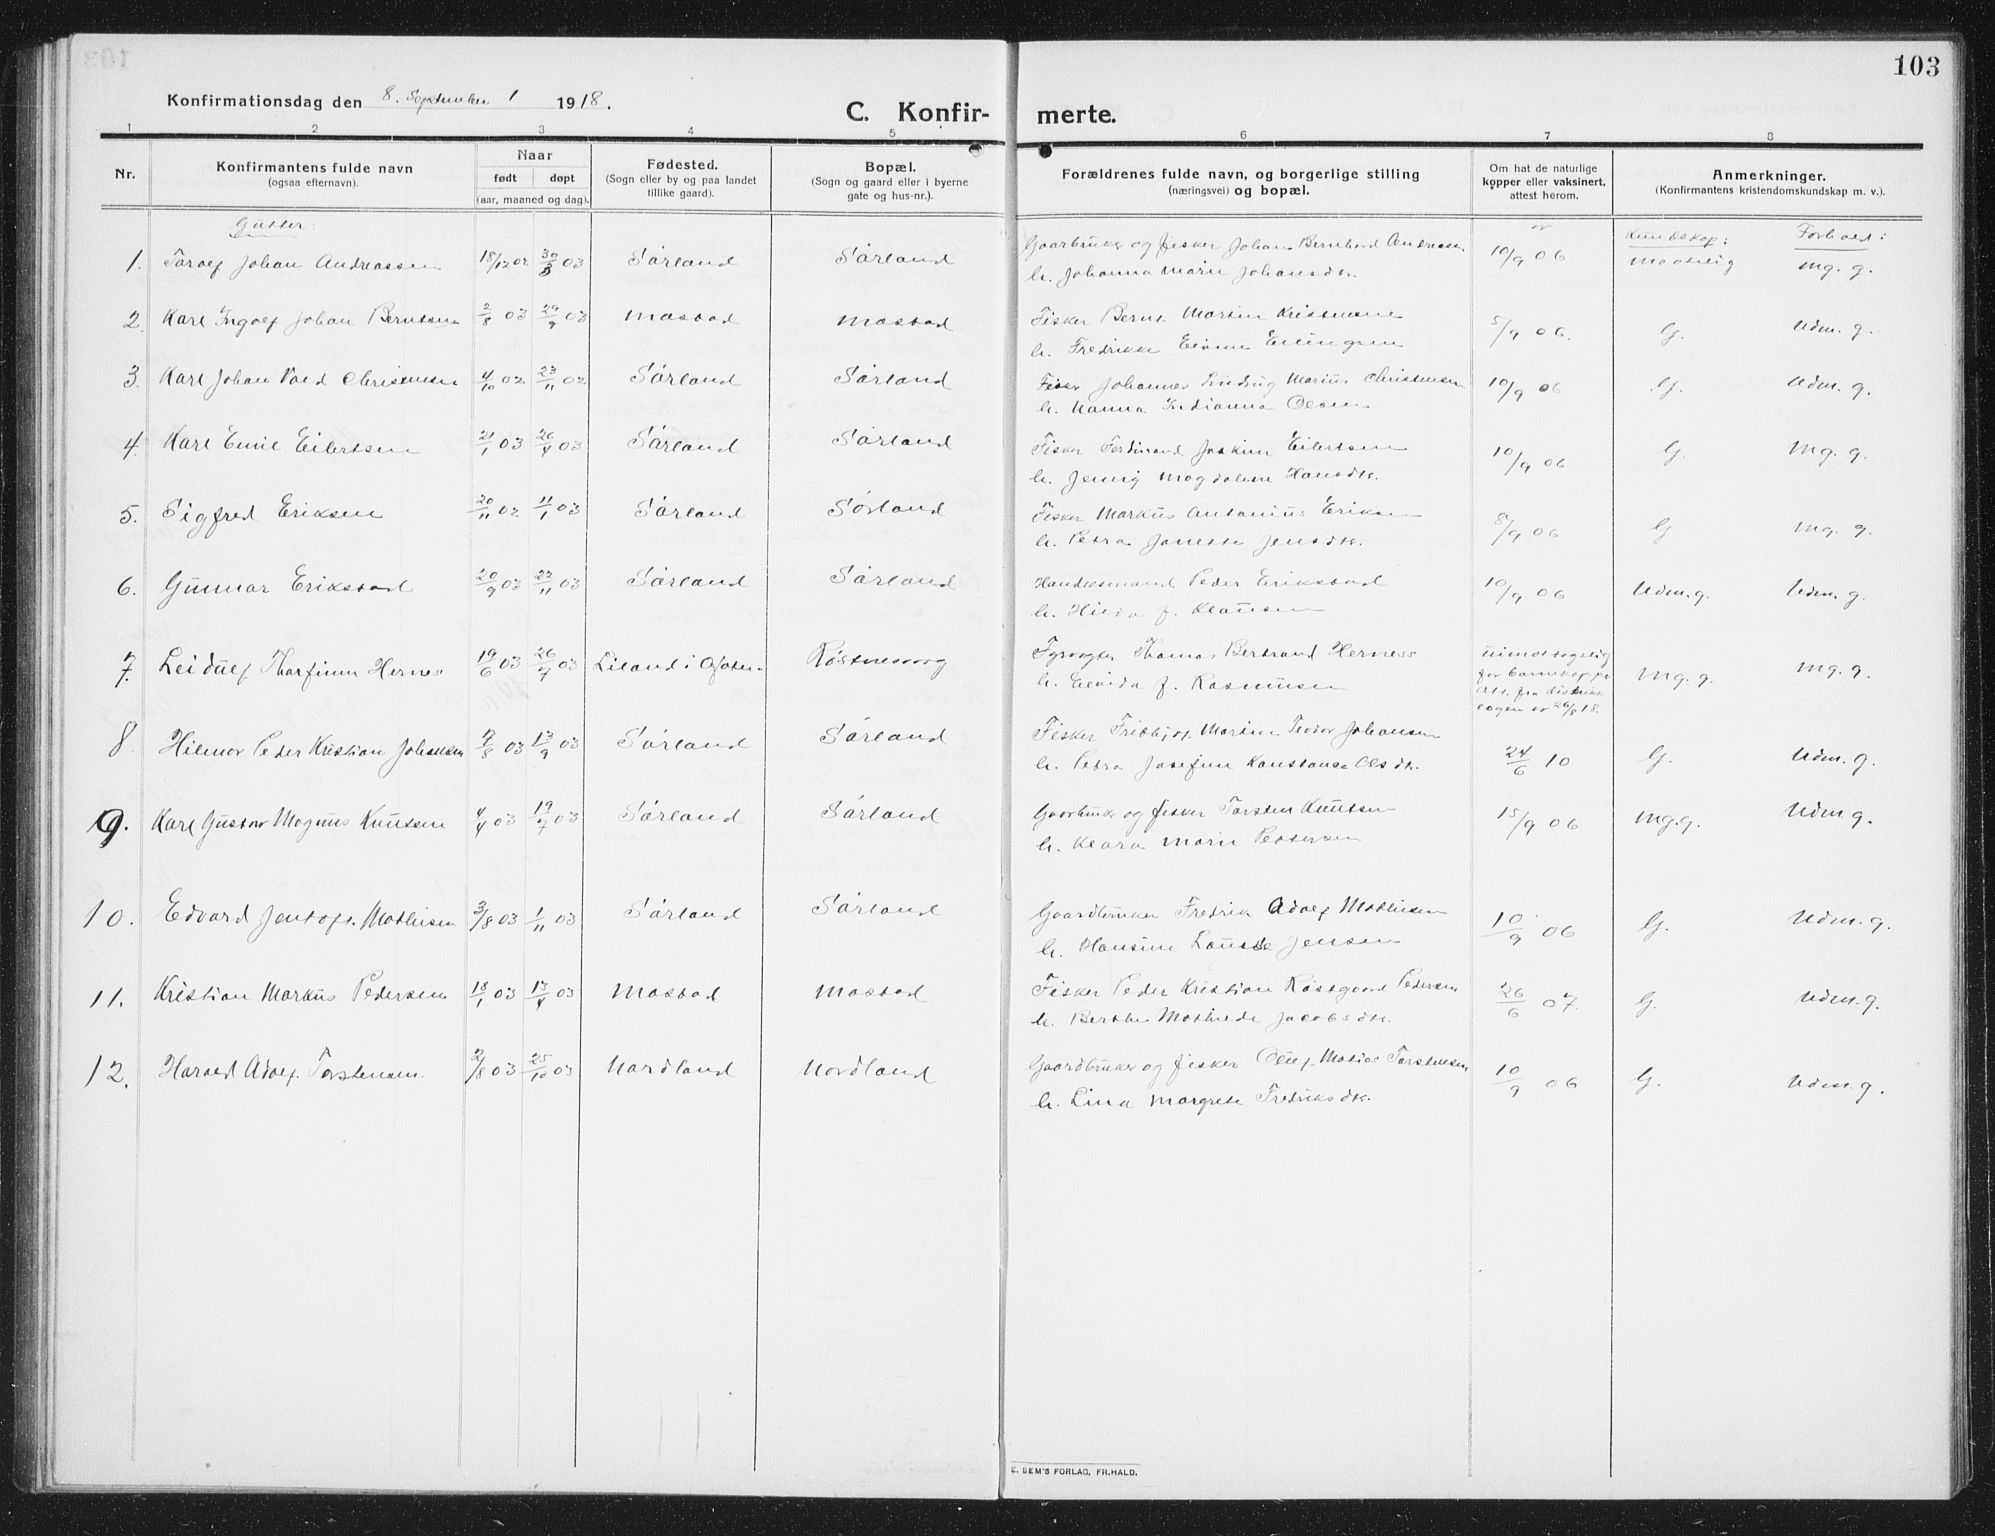 103
Konfirmationsdag den 8. September 1918.
C. Konfir- merte.
1 2 3 4 5 6 7 8
Nr.
Konfirmantens fulde navn
(ogsaa efternavn).
Naar
født døpt
(aar, maaned og dag).
Fødested.
(Sogn eller by og paa landet
tillike gaard).
Bopæl.
(Sogn og gaard eller i byerne
gate og hus-nr.).
Forældrenes fulde navn, og borgerlige stilling
(næringsvei) og bopæl.
Om hat de naturlige
kopper eller vaksinert,
attest herom.
Anmerkninger.
(Konfirmantens kristendomskundskap m. v.).
Gutter:
Kundskap: Forhold:
1. Toralf Johan Andreassen 18/12 02 30/3 03 Sørland Sørland Gaarbruker og fisker Johan Bernhard Andreassen 10/9 06 maatelig mg. g.
h. Johanna Marie Johansdtr.
2. Karl Ingolf Johan Berntsen 2/8 03 29/9 03 Mastad Mastad Fisker Bernt Martin Kristensen 5/9 06. G. Udm. g.
h. Fredrikke Elvine Ellingsen
3. Karl Johan Vold Christensen 4/10 02 23/11 02 Sørland Sørland Fisker Johannes Ludvig Marius Christensen 10/9 06 G. Udm. g.
h. Nanna Indianna Olsen
4. Karl Emil Eilertsen 21/1 03 26/4 03 Sørland Sørland Fisker Ferdinand Joakim Eilertsen 10/9 06 G. Mg. g.
h. Jenny Magdalene Hansdtr.
5. Sigfred Eriksen 20/11 02 11/1 03 Sørland Sørland Fisker Markus Antonius Eriksen 8/9 06 G. mg. g.
h. Petra Janette Jensdtr.
6. Gunnar Erikstad 20/9 03 22/11 03 Sørland Sørland Handelsmand Peder Erikstad 10/9 06 Udm. g. Udm. g.
h. Hilda f. Klausen
7. Leidulf Thorfinn Hernes 19/6 03 26/7 03 Liland i Ofoten Røstnesvaag Fyrvogter Thomas Bertrand Herness uimottagelig mg. g. mg. g.
h. Elvida f. Rasmusen for barnekopper
Att. fra distrikts
lægen av 26/8 18.
8. Hilmar Peder Kristian Johansen 7/8 03 13/9 03 Sørland Sørland Fisker Fridtjof Martin Teodor Johansen 24/6 10 G. Udm. g.
h. Petra Josefine Konstanse Olsdtr.
9. Karl Gustav Magnus Knutsen 4/4 03 19/7 03 Sørland Sørland Gaarbruker og fisker Torsten Knutsen 15/9 06 mg. g. Udm g.
h. Klara Marie Pettersen
10. Edvard Jentoft Mathisen 3/8 03 1/11 03 Sørland Sørland Gaardbruker Fredrik Adolf Mathisen 10/9 06 G. Udm. g.
h. Hansine Jensen
11. Kristian Markus Pedersen 18/1 03 13/4 03 Mastad Mastad Fisker Peder Kristian Røstgaard Pedersen 26/6 07. G. Udm. g.
h. Berthe Mathilde Jacobsdtr.
12. Harald Adolf Torstensen. 2/8 03 25/10 03 Nordland Nordland Gaardbruker og fisker Oluf Matias Torstensen 10/9 06 G. Udm. g.
h. Lina Margrete Fredriksdtr.
E. SEM'S FORLAG, FR.HALD.